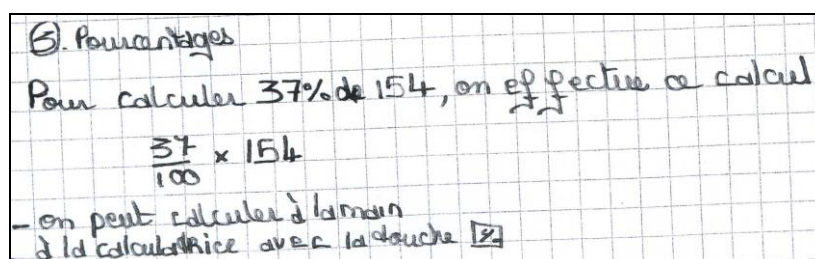 ⑤. Pourcentages
Pour calculer 37% de 154, on effectue ce calcul
37/100 × 154
- on peut calculer à la main
à la calculatrice avec la douche %